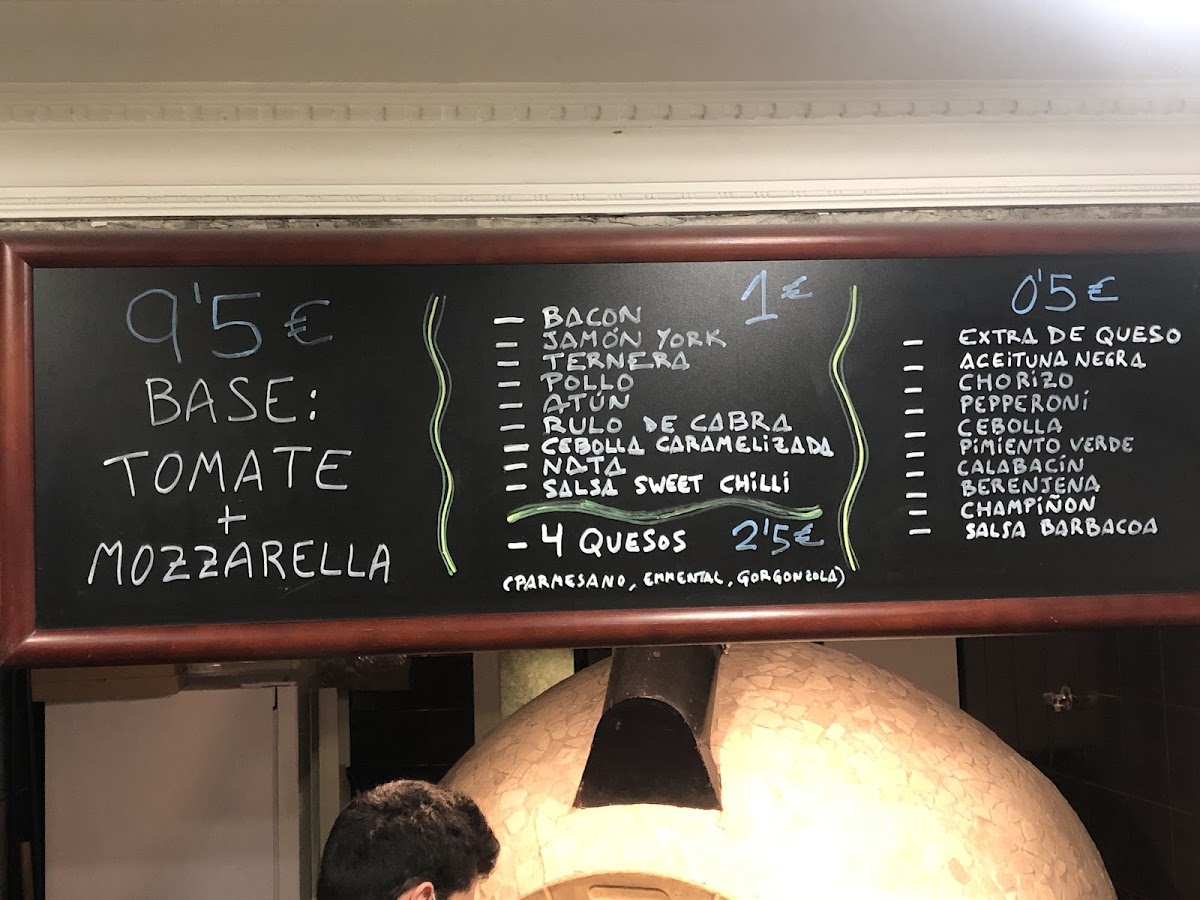 9'5€
BASE:
TOMATE
+
MOZZARELLA
1€
— BACON
— JAMÓN YORK
— TERNERA
— POLLO
— ATÚN
— RULO DE CABRA
— CEBOLLA CARAMELIZADA
— NATA
— SALSA SWEET CHILLI
— 4 QUESOS 2'5€
(PARMESANO, EMMENTAL, GORGONZOLA)
0'5€
— EXTRA DE QUESO
— ACEITUNA NEGRA
— CHORIZO
— PEPPERONÍ
— CEBOLLA
— PIMIENTO VERDE
— CALABACÍN
— BERENJENA
— CHAMPIÑON
— SALSA BARBACOA